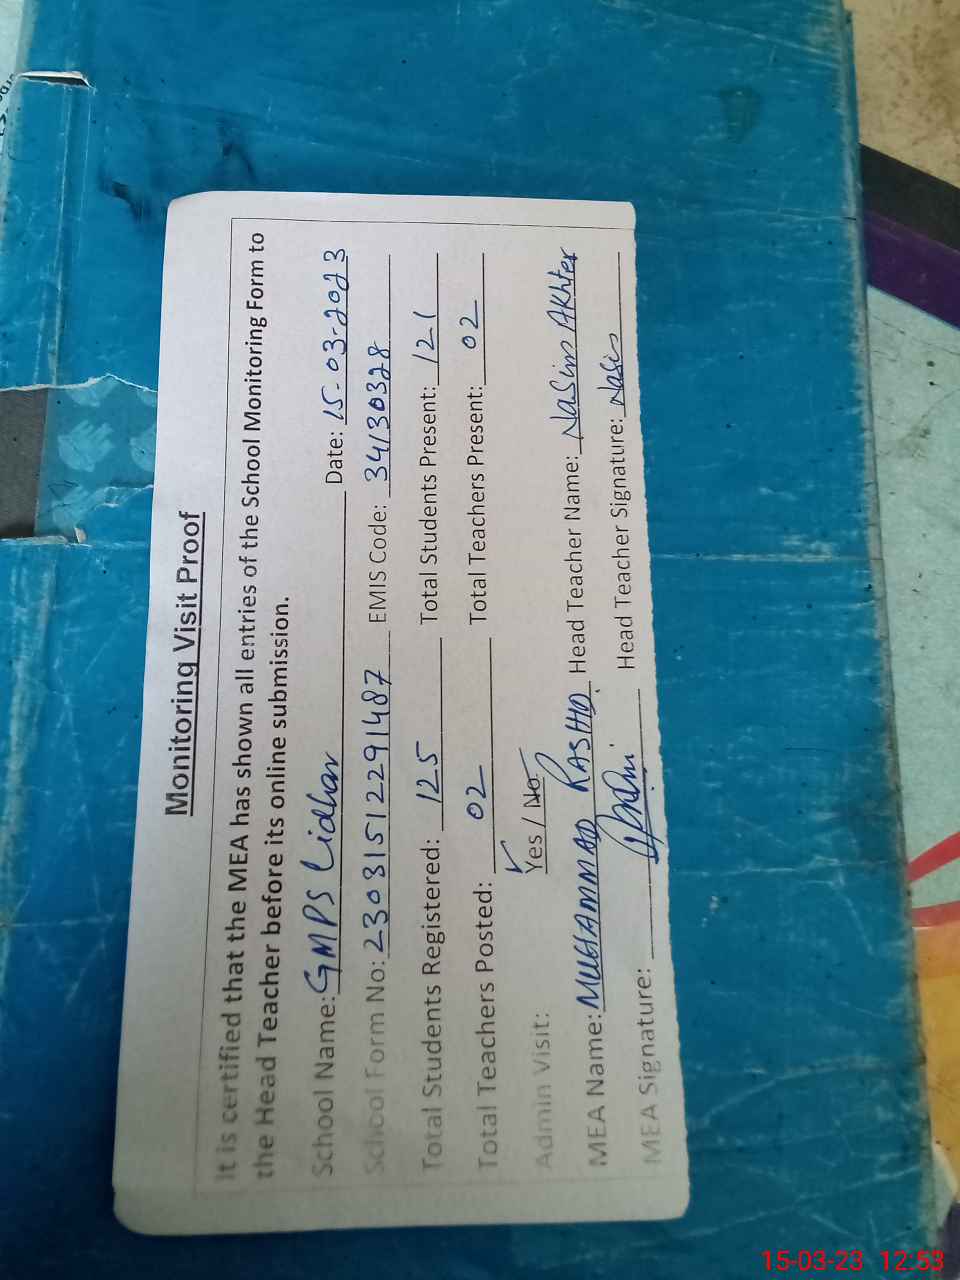 Monitoring Visit Proof
It is certified that the MEA has shown all entries of the School Monitoring Form to
the Head Teacher before its online submission.
School Name: GMPS Lidhar Date: 15-03-2023
School Form No: 23031512291487 EMIS Code: 34130328
Total Students Registered: 125 Total Students Present: 121
Total Teachers Posted: 02 Total Teachers Present: 02
Admin Visit: Yes / No
MEA Name: MUHAMMAD RASHID Head Teacher Name: Nasim Akhter
MEA Signature: Head Teacher Signature: Nasim
15-03-23 12:53